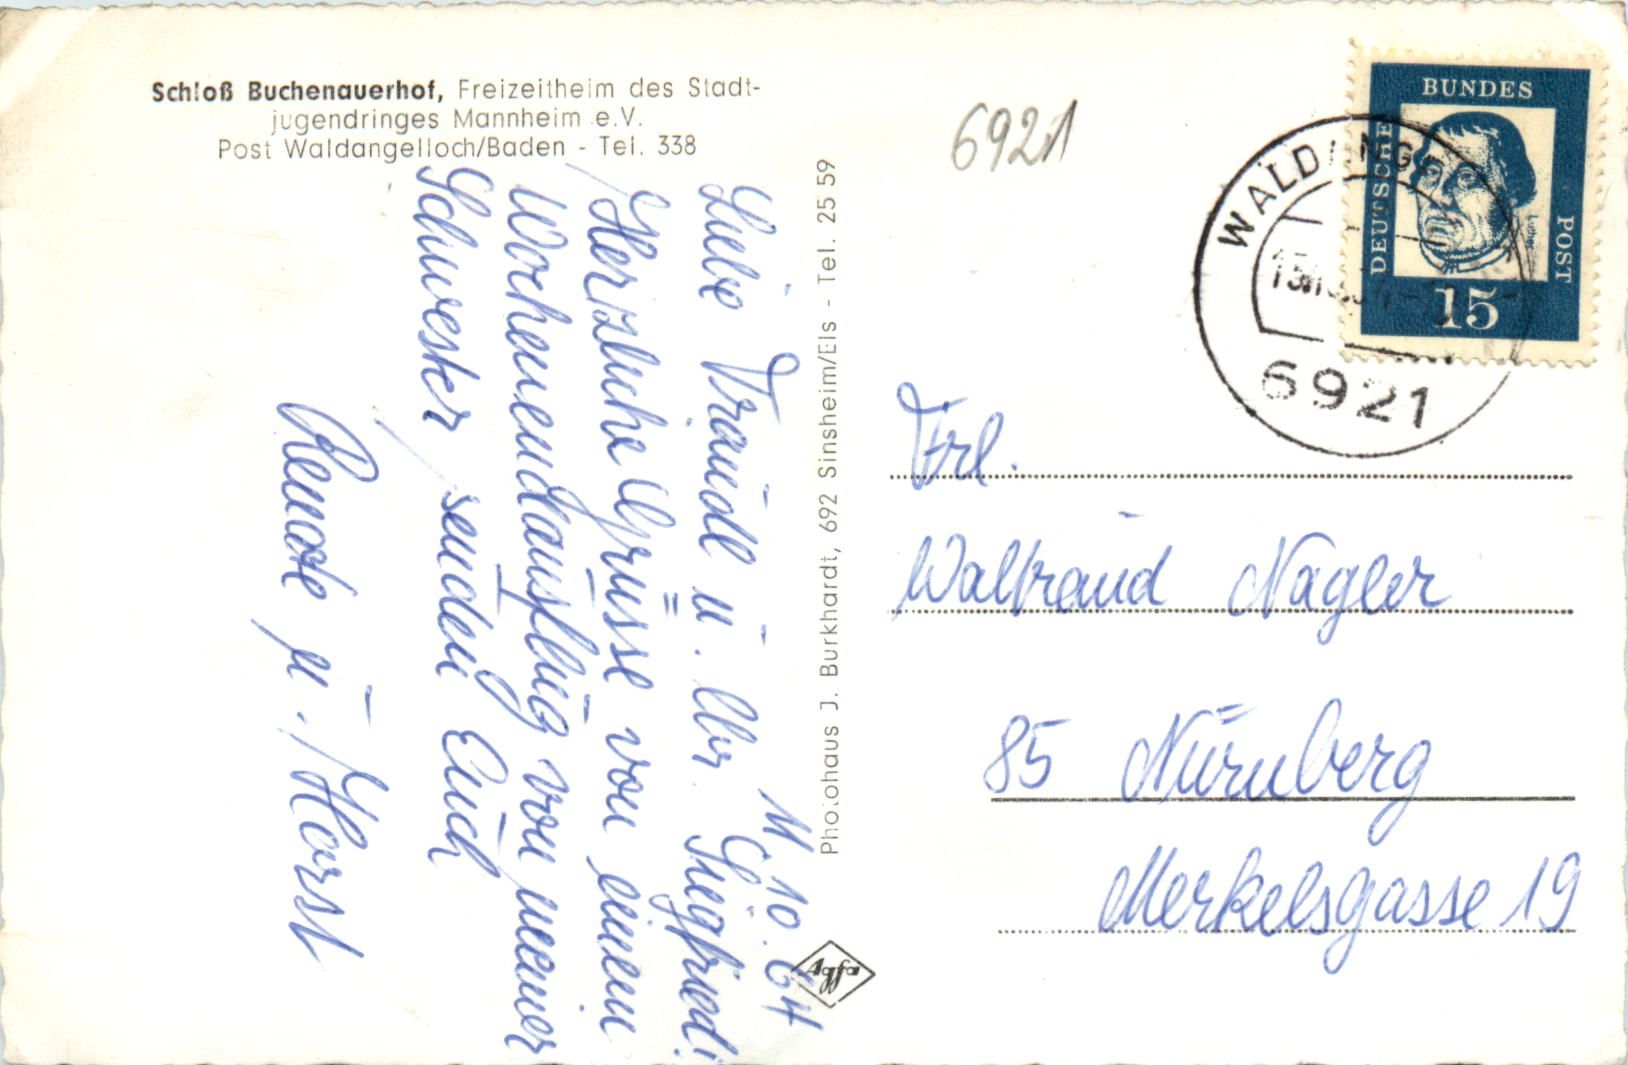 Schloß Buchenauerhof, Freizeitheim des Stadt-
jugendringes Mannheim e.V.
Post Waldangelloch/Baden - Tel. 338
6921
BUNDES
DEUTSCHE
POST
Luther
15
6921
11.10.64
Liebe Traudl u. lbr. Siegfried!
Herzliche Grüsse von einem
Wochenendausflug von meiner
Schwester senden Euch
Renate u. Horst
Photohaus J. Burkhardt, 692 Sinsheim/Els - Tel. 25 59
Agfa
Frl.
Waltraud Nagler
85 Nürnberg
Merkelsgasse 19